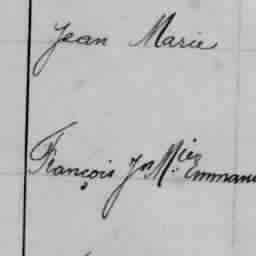 Jean Marie
François Jh Mie Emmanu